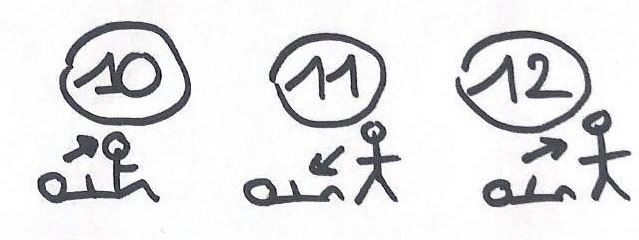 10 11 12